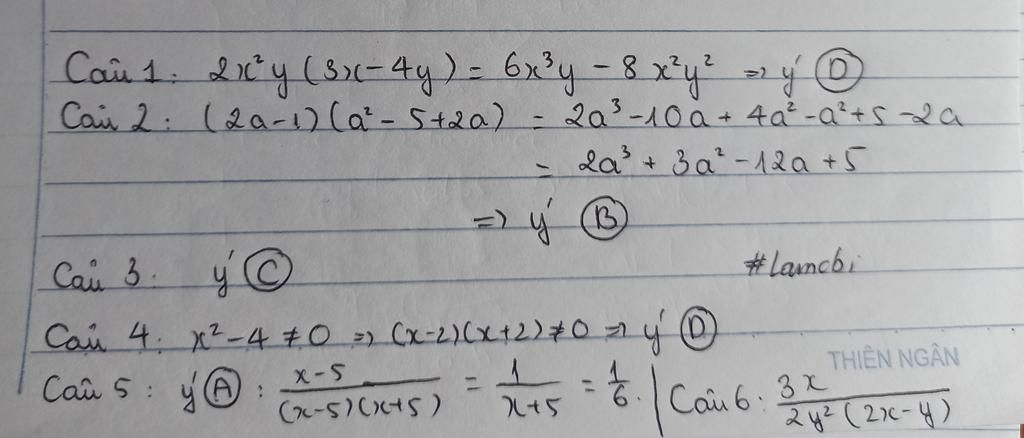 Câu 1: 2x²y(3x-4y) = 6x³y - 8x²y² => ý D
Câu 2: (2a-1)(a²-5+2a) = 2a³-10a+4a²-a²+5-2a
= 2a³+3a²-12a+5
=> ý B
Câu 3: ý C
#lamcbi
Câu 4: x²-4≠0 => (x-2)(x+2)≠0 => ý D
THIÊN NGÂN
Câu 5: ý A: (x-5)/((x-5)(x+5)) = 1/(x+5) = 1/6. | Câu 6: 3x/(2y²(2x-y))